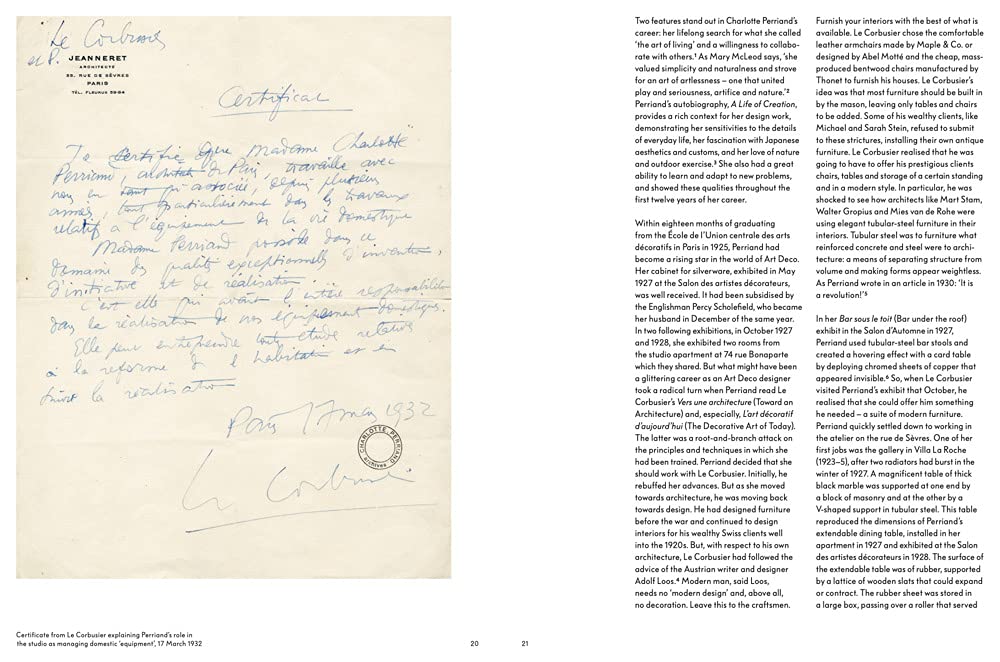 Le Corbusier
et P. JEANNERET
ARCHITECTE
35, RUE DE SÈVRES
PARIS
TÉL. FLEURUS 99-84
Certificat
Je certifie que Madame Charlotte
Perriand, de Paris, travaille avec
nous en associée, depuis plusieurs
années, tout particulièrement dans les travaux
relatifs à l'équipement de la vie domestique
Madame Perriand possède dans ce
domaine des qualités exceptionnelles d'invention,
d'initiative et de réalisation
C'est elle qui avait l'entière responsabilité
dans la réalisation de nos équipements domestiques.
Elle peut entreprendre toute étude relative
à la réforme de l'habitation et en
suivre la réalisation
Paris 17 mars 1932
CHARLOTTE PERRIAND
ARCHIVES
Le Corbusier
Certificate from Le Corbusier explaining Perriand's role in
the studio as managing domestic 'equipment', 17 March 1932
20
21
Two features stand out in Charlotte Perriand's
career: her lifelong search for what she called
'the art of living' and a willingness to collabo-
rate with others.¹ As Mary McLeod says, 'she
valued simplicity and naturalness and strove
for an art of artlessness – one that united
play and seriousness, artifice and nature.'²
Perriand's autobiography, A Life of Creation,
provides a rich context for her design work,
demonstrating her sensitivities to the details
of everyday life, her fascination with Japanese
aesthetics and customs, and her love of nature
and outdoor exercise.³ She also had a great
ability to learn and adapt to new problems,
and showed these qualities throughout the
first twelve years of her career.
Within eighteen months of graduating
from the École de l'Union centrale des arts
décoratifs in Paris in 1925, Perriand had
become a rising star in the world of Art Deco.
Her cabinet for silverware, exhibited in May
1927 at the Salon des artistes décorateurs,
was well received. It had been subsidised by
the Englishman Percy Scholefield, who became
her husband in December of the same year.
In two following exhibitions, in October 1927
and 1928, she exhibited two rooms from
the studio apartment at 74 rue Bonaparte
which they shared. But what might have been
a glittering career as an Art Deco designer
took a radical turn when Perriand read Le
Corbusier's Vers une architecture (Toward an
Architecture) and, especially, L'art décoratif
d'aujourd'hui (The Decorative Art of Today).
The latter was a root-and-branch attack on
the principles and techniques in which she
had been trained. Perriand decided that she
should work with Le Corbusier. Initially, he
rebuffed her advances. But as she moved
towards architecture, he was moving back
towards design. He had designed furniture
before the war and continued to design
interiors for his wealthy Swiss clients well
into the 1920s. But, with respect to his own
architecture, Le Corbusier had followed the
advice of the Austrian writer and designer
Adolf Loos.⁴ Modern man, said Loos,
needs no 'modern design' and, above all,
no decoration. Leave this to the craftsmen.
Furnish your interiors with the best of what is
available. Le Corbusier chose the comfortable
leather armchairs made by Maple & Co. or
designed by Abel Motté and the cheap, mass-
produced bentwood chairs manufactured by
Thonet to furnish his houses. Le Corbusier's
idea was that most furniture should be built in
by the mason, leaving only tables and chairs
to be added. Some of his wealthy clients, like
Michael and Sarah Stein, refused to submit
to these strictures, installing their own antique
furniture. Le Corbusier realised that he was
going to have to offer his prestigious clients
chairs, tables and storage of a certain standing
and in a modern style. In particular, he was
shocked to see how architects like Mart Stam,
Walter Gropius and Mies van de Rohe were
using elegant tubular-steel furniture in their
interiors. Tubular steel was to furniture what
reinforced concrete and steel were to archi-
tecture: a means of separating structure from
volume and making forms appear weightless.
As Perriand wrote in an article in 1930: 'It is
a revolution!'⁵
In her Bar sous le toit (Bar under the roof)
exhibit in the Salon d'Automne in 1927,
Perriand used tubular-steel bar stools and
created a hovering effect with a card table
by deploying chromed sheets of copper that
appeared invisible.⁶ So, when Le Corbusier
visited Perriand's exhibit that October, he
realised that she could offer him something
he needed – a suite of modern furniture.
Perriand quickly settled down to working in
the atelier on the rue de Sèvres. One of her
first jobs was the gallery in Villa La Roche
(1923–5), after two radiators had burst in the
winter of 1927. A magnificent table of thick
black marble was supported at one end by
a block of masonry and at the other by a
V-shaped support in tubular steel. This table
reproduced the dimensions of Perriand's
extendable dining table, installed in her
apartment in 1927 and exhibited at the Salon
des artistes décorateurs in 1928. The surface of
the extendable table was of rubber, supported
by a lattice of wooden slats that could expand
or contract. The rubber sheet was stored in
a large box, passing over a roller that served